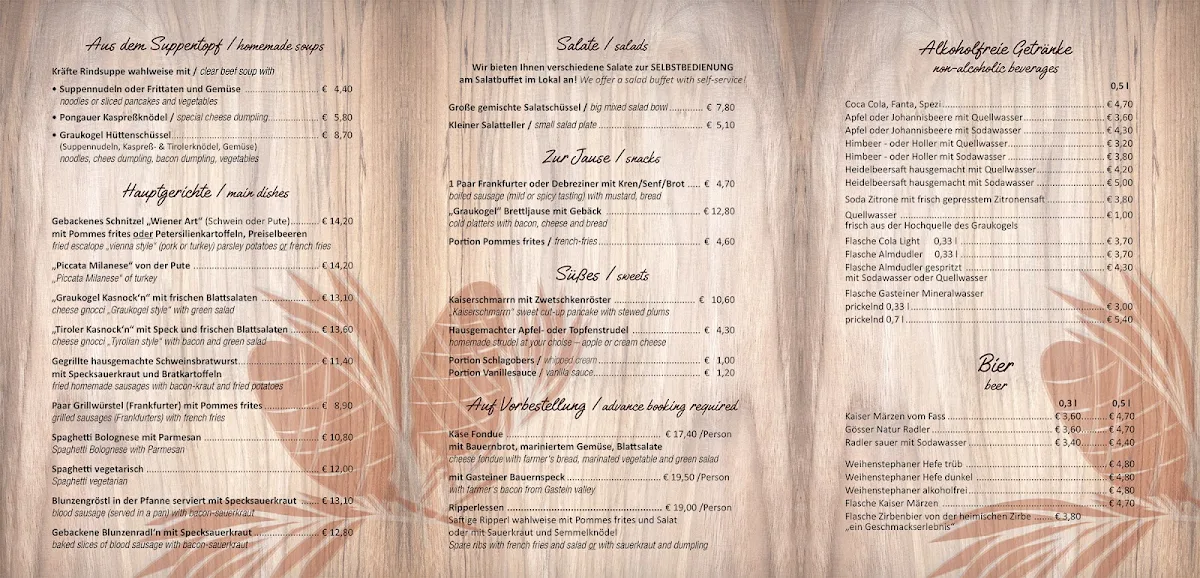 Aus dem Suppentopf / homemade soups
Kräfte Rindsuppe wahlweise mit / clear beef soup with
• Suppennudeln oder Frittaten und Gemüse ........ € 4,40
noodles or sliced pancakes and vegetables
• Pongauer Kaspreßknödel / special cheese dumpling ........ € 5,80
• Graukogel Hüttenschüssel ........ € 8,70
(Suppennudeln, Kaspreß- & Tirolerknödel, Gemüse)
noodles, chees dumpling, bacon dumpling, vegetables
Hauptgerichte / main dishes
Gebackenes Schnitzel „Wiener Art“ (Schwein oder Pute) ........ € 14,20
mit Pommes frites oder Petersilienkartoffeln, Preiselbeeren
fried escalope „vienna style“ (pork or turkey) parsley potatoes or french fries
„Piccata Milanese“ von der Pute ........ € 14,20
„Piccata Milanese“ of turkey
„Graukogel Kasnock‘n“ mit frischen Blattsalaten ........ € 13,10
cheese gnocci „Graukogel style“ with green salad
„Tiroler Kasnock‘n“ mit Speck und frischen Blattsalaten ........ € 13,60
cheese gnocci „Tyrolian style“ with bacon and green salad
Gegrillte hausgemachte Schweinsbratwurst ........ € 11,40
mit Specksauerkraut und Bratkartoffeln
fried homemade sausages with bacon-kraut and fried potatoes
Paar Grillwürstel (Frankfurter) mit Pommes frites ........ € 8,90
grilled sausages (Frankfurters) with french fries
Spaghetti Bolognese mit Parmesan ........ € 10,80
Spaghetti Bolognese with Parmesan
Spaghetti vegetarisch ........ € 12,00
Spaghetti vegetarian
Blunzengröstl in der Pfanne serviert mit Specksauerkraut ........ € 13,10
blood sausage (served in a pan) with bacon-sauerkraut
Gebackene Blunzenradl‘n mit Specksauerkraut ........ € 12,80
baked slices of blood sausage with bacon-sauerkraut
Salate / salads
Wir bieten Ihnen verschiedene Salate zur SELBSTBEDIENUNG
am Salatbuffet im Lokal an! We offer a salad buffet with self-service!
Große gemischte Salatschüssel / big mixed salad bowl ........ € 7,80
Kleiner Salatteller / small salad plate ........ € 5,10
Zur Jause / snacks
1 Paar Frankfurter oder Debreziner mit Kren/Senf/Brot ..... € 4,70
boiled sausage (mild or spicy tasting) with mustard, bread
„Graukogel“ Brettljause mit Gebäck ........ € 12,80
cold platters with bacon, cheese and bread
Portion Pommes frites / french-fries ........ € 4,60
Süßes / sweets
Kaiserschmarrn mit Zwetschkenröster ........ € 10,60
„Kaiserschmarrn“ sweet cut-up pancake with stewed plums
Hausgemachter Apfel- oder Topfenstrudel ........ € 4,30
homemade strudel at your choise – apple or cream cheese
Portion Schlagobers / whipped cream ........ € 1,00
Portion Vanillesauce / vanilla sauce ........ € 1,20
Auf Vorbestellung / advance booking required
Käse Fondue ........ € 17,40 /Person
mit Bauernbrot, mariniertem Gemüse, Blattsalate
cheese fondue with farmer's bread, marinated vegetable and green salad
mit Gasteiner Bauernspeck ........ € 19,50 /Person
with farmer's bacon from Gastein valley
Ripperlessen ........ € 19,00 /Person
Saftige Ripperl wahlweise mit Pommes frites und Salat
oder mit Sauerkraut und Semmelknödel
Spare ribs with french fries and salad or with sauerkraut and dumpling
Alkoholfreie Getränke
non-alcoholic beverages
0,5 l
Coca Cola, Fanta, Spezi ........ € 4,70
Apfel oder Johannisbeere mit Quellwasser ........ € 3,60
Apfel oder Johannisbeere mit Sodawasser ........ € 4,30
Himbeer - oder Holler mit Quellwasser ........ € 3,20
Himbeer - oder Holler mit Sodawasser ........ € 3,80
Heidelbeersaft hausgemacht mit Quellwasser ........ € 4,20
Heidelbeersaft hausgemacht mit Sodawasser ........ € 5,00
Soda Zitrone mit frisch gepresstem Zitronensaft ........ € 3,80
Quellwasser ........ € 1,00
frisch aus der Hochquelle des Graukogels
Flasche Cola Light 0,33 l ........ € 3,70
Flasche Almdudler 0,33 l ........ € 3,70
Flasche Almdudler gespritzt ........ € 4,30
mit Sodawasser oder Quellwasser
Flasche Gasteiner Mineralwasser
prickelnd 0,33 l ........ € 3,00
prickelnd 0,7 l ........ € 5,40
Bier
beer
0,3 l 0,5 l
Kaiser Märzen vom Fass ........ € 3,60 ........ € 4,70
Gösser Natur Radler ........ € 3,60 ........ € 4,70
Radler sauer mit Sodawasser ........ € 3,40 ........ € 4,40
Weihenstephaner Hefe trüb ........ € 4,80
Weihenstephaner Hefe dunkel ........ € 4,80
Weihenstephaner alkoholfrei ........ € 4,80
Flasche Kaiser Märzen ........ € 4,70
Flasche Zirbenbier von der heimischen Zirbe ...... € 3,80
„ein Geschmackserlebnis“